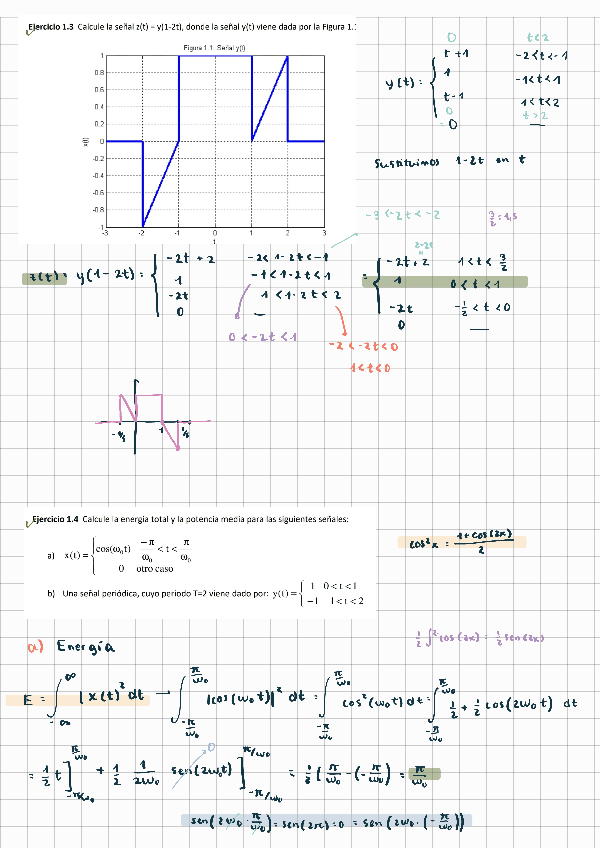 Ejercicio 1.3 Calcule la señal z(t) = y(1-2t), donde la señal y(t) viene dada por la Figura 1.1
Figura 1.1. Señal y(t)
1
0.8
0.6
0.4
0.2
0
-0.2
-0.4
-0.6
-0.8
-1
-3 -2 -1 0 1 2 3
x(t)
t
y(t) =
0 t<2
t+1 -2<t<-1
1 -1<t<1
t-1 1<t<2
0 t>2
0 —
Sustituimos 1-2t en t
-3<-2t<-2
3/2 = 1,5
z(t) = y(1-2t) =
-2t+2 -2<1-2t<-1
1 -1<1-2t<1
-2t 1<1-2t<2
0 —
=
2-2t
-2t+2 1<t<3/2
1 0<t<1
-2t -1/2<t<0
0 —
0<-2t<1
-2<-2t<0
1<t<0
1
Ejercicio 1.4 Calcule la energía total y la potencia media para las siguientes señales:
a) x(t) = cos(ω₀t) -π/ω₀ < t < π/ω₀
0 otro caso
b) Una señal periódica, cuyo periodo T=2 viene dado por: y(t) = 1 0<t<1
-1 1<t<2
cos²x = (1+cos(2x))/2
a) Energía
E = ∫_{-∞}^{∞} |x(t)² dt → ∫_{-π/ω₀}^{π/ω₀} |cos(ω₀t)|² dt = ∫_{-π/ω₀}^{π/ω₀} cos²(ω₀t) dt = ∫_{-π/ω₀}^{π/ω₀} 1/2 + 1/2 cos(2ω₀t) dt
= 1/2 t]_{-π/ω₀}^{π/ω₀} + 1/2 1/2ω₀ sen(2ω₀t)]_{-π/ω₀}^{π/ω₀} = 1/2 [π/ω₀ - (-π/ω₀) = π/ω₀
0
sen(2ω₀·π/ω₀) = sen(2π) = 0 = sen(2ω₀·(-π/ω₀))